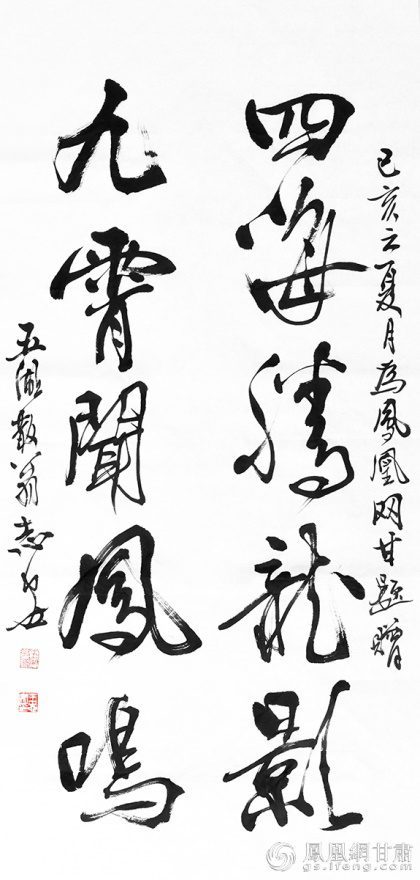 己亥立夏月為鳳凰网甘題贈
四海騰龍影
九霄聞鳳鳴
五湖散翁志
鳳凰網甘肅
gs.ifeng.com